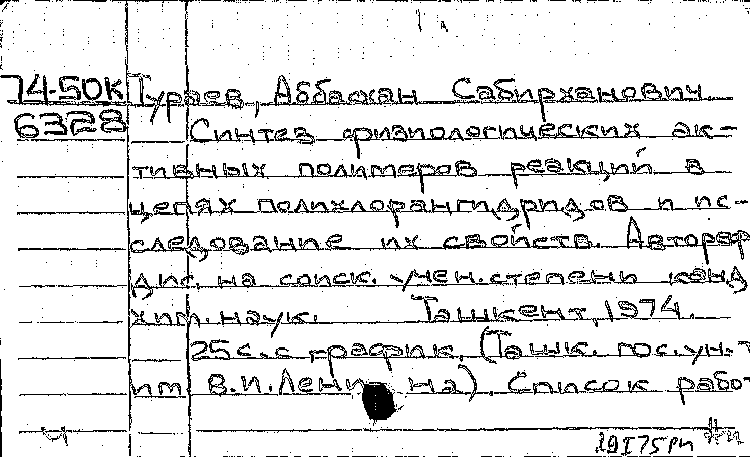 74-50К Тураев, Аббасхан Сабирханович.
6328 Синтез физиологических ак-
тивных полимеров реакций в
цепях полихлорангидридов и ис-
следование их свойств. Автореф
дис. на соиск. учен. степени канд
хим. наук. Ташкент, 1974.
25 с. с график. (Ташк. гос. ун-т
им В.И. Ленина). Список работ